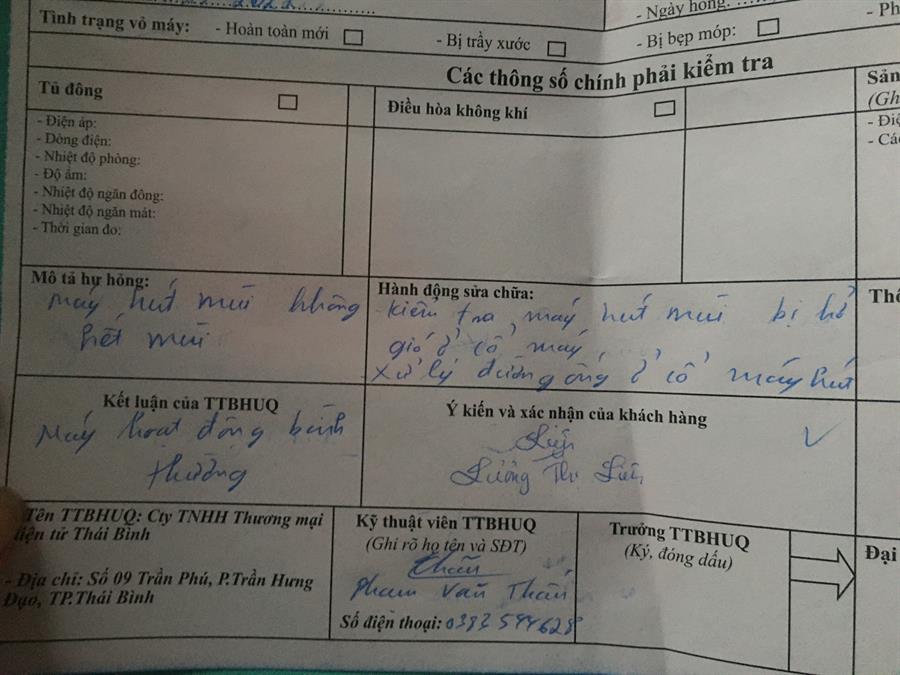 - Ngày hỏng:
- Ph
Tình trạng vỏ máy: - Hoàn toàn mới - Bị trầy xước - Bị bẹp móp:
Các thông số chính phải kiểm tra
Tủ đông
Điều hòa không khí
Sản
(Gh
- Điện áp:
- Dòng điện:
- Nhiệt độ phòng:
- Độ ẩm:
- Nhiệt độ ngăn đông:
- Nhiệt độ ngăn mát:
- Thời gian đo:
- Điệ
- Các
Mô tả hư hỏng:
máy hút mùi không
hết mùi
Hành động sửa chữa:
kiểm tra máy hút mùi bị hở
gió ở cổ máy
xử lý đường ống ở cổ máy hút
Thô
Kết luận của TTBHUQ
Máy hoạt động bình
thường
Ý kiến và xác nhận của khách hàng
Lương Thị
Tên TTBHUQ: Cty TNHH Thương mại
điện tử Thái Bình
- Địa chỉ: Số 09 Trần Phú, P.Trần Hưng
Đạo, TP.Thái Bình
Kỹ thuật viên TTBHUQ
(Ghi rõ họ tên và SĐT)
Phạm Văn
Số điện thoại: 0382594628
Trưởng TTBHUQ
(Ký, đóng dấu)
Đại